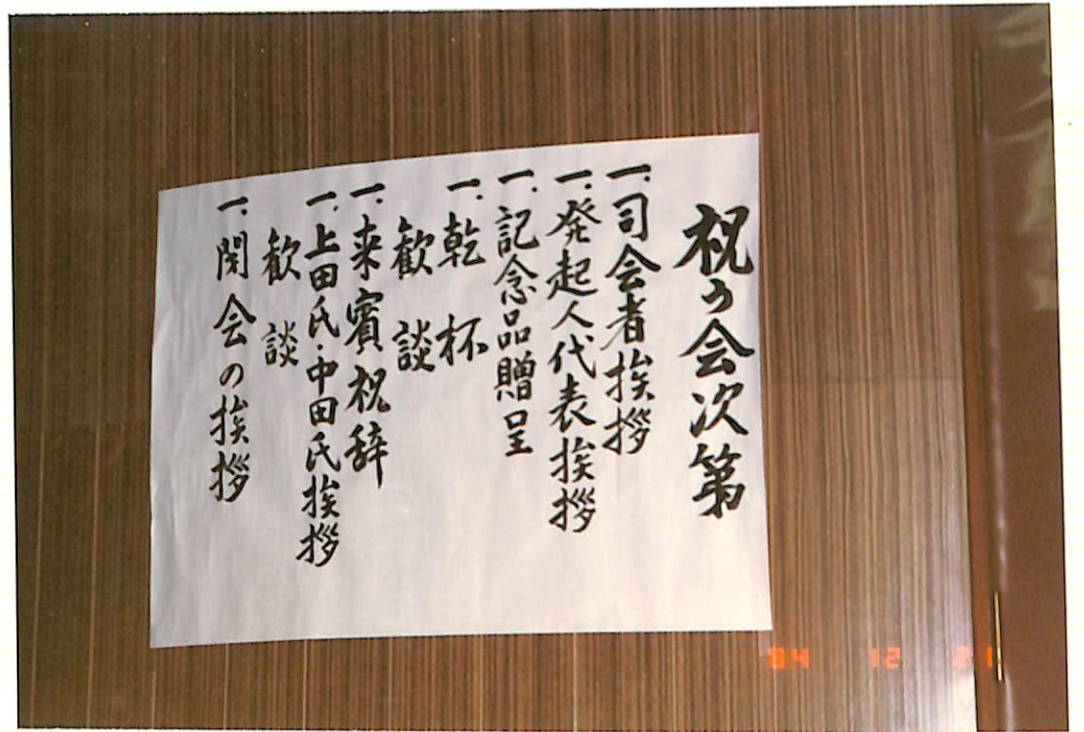 祝う会次第
一.司会者挨拶
一.発起人代表挨拶
一.記念品贈呈
一.乾杯
歓談
一.来賓祝辞
一.上田氏・中田氏挨拶
歓談
一.閉会の挨拶
84 12 21